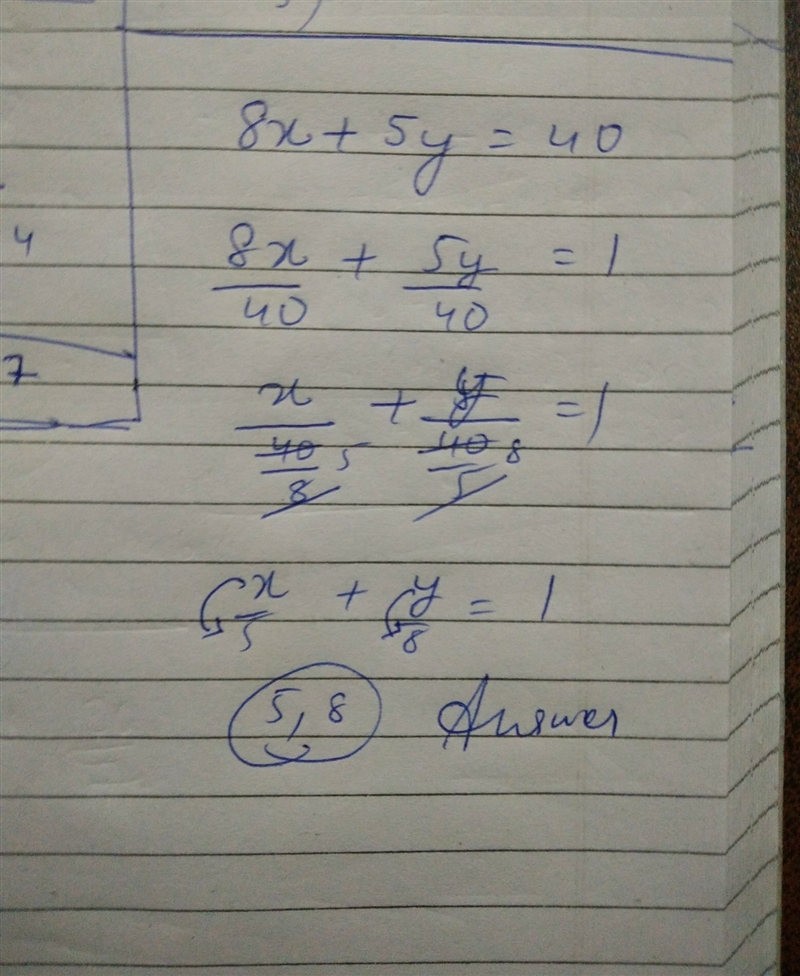 8x + 5y = 40
4
8x/40 + 5y/40 = 1
7
x/(40/8) 5 + y/(40/5) 8 = 1
x/5 + y/8 = 1
5, 8 Answer